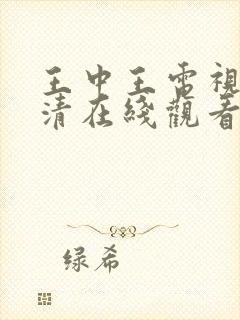 王中王電視
清在綫觀看
绿希